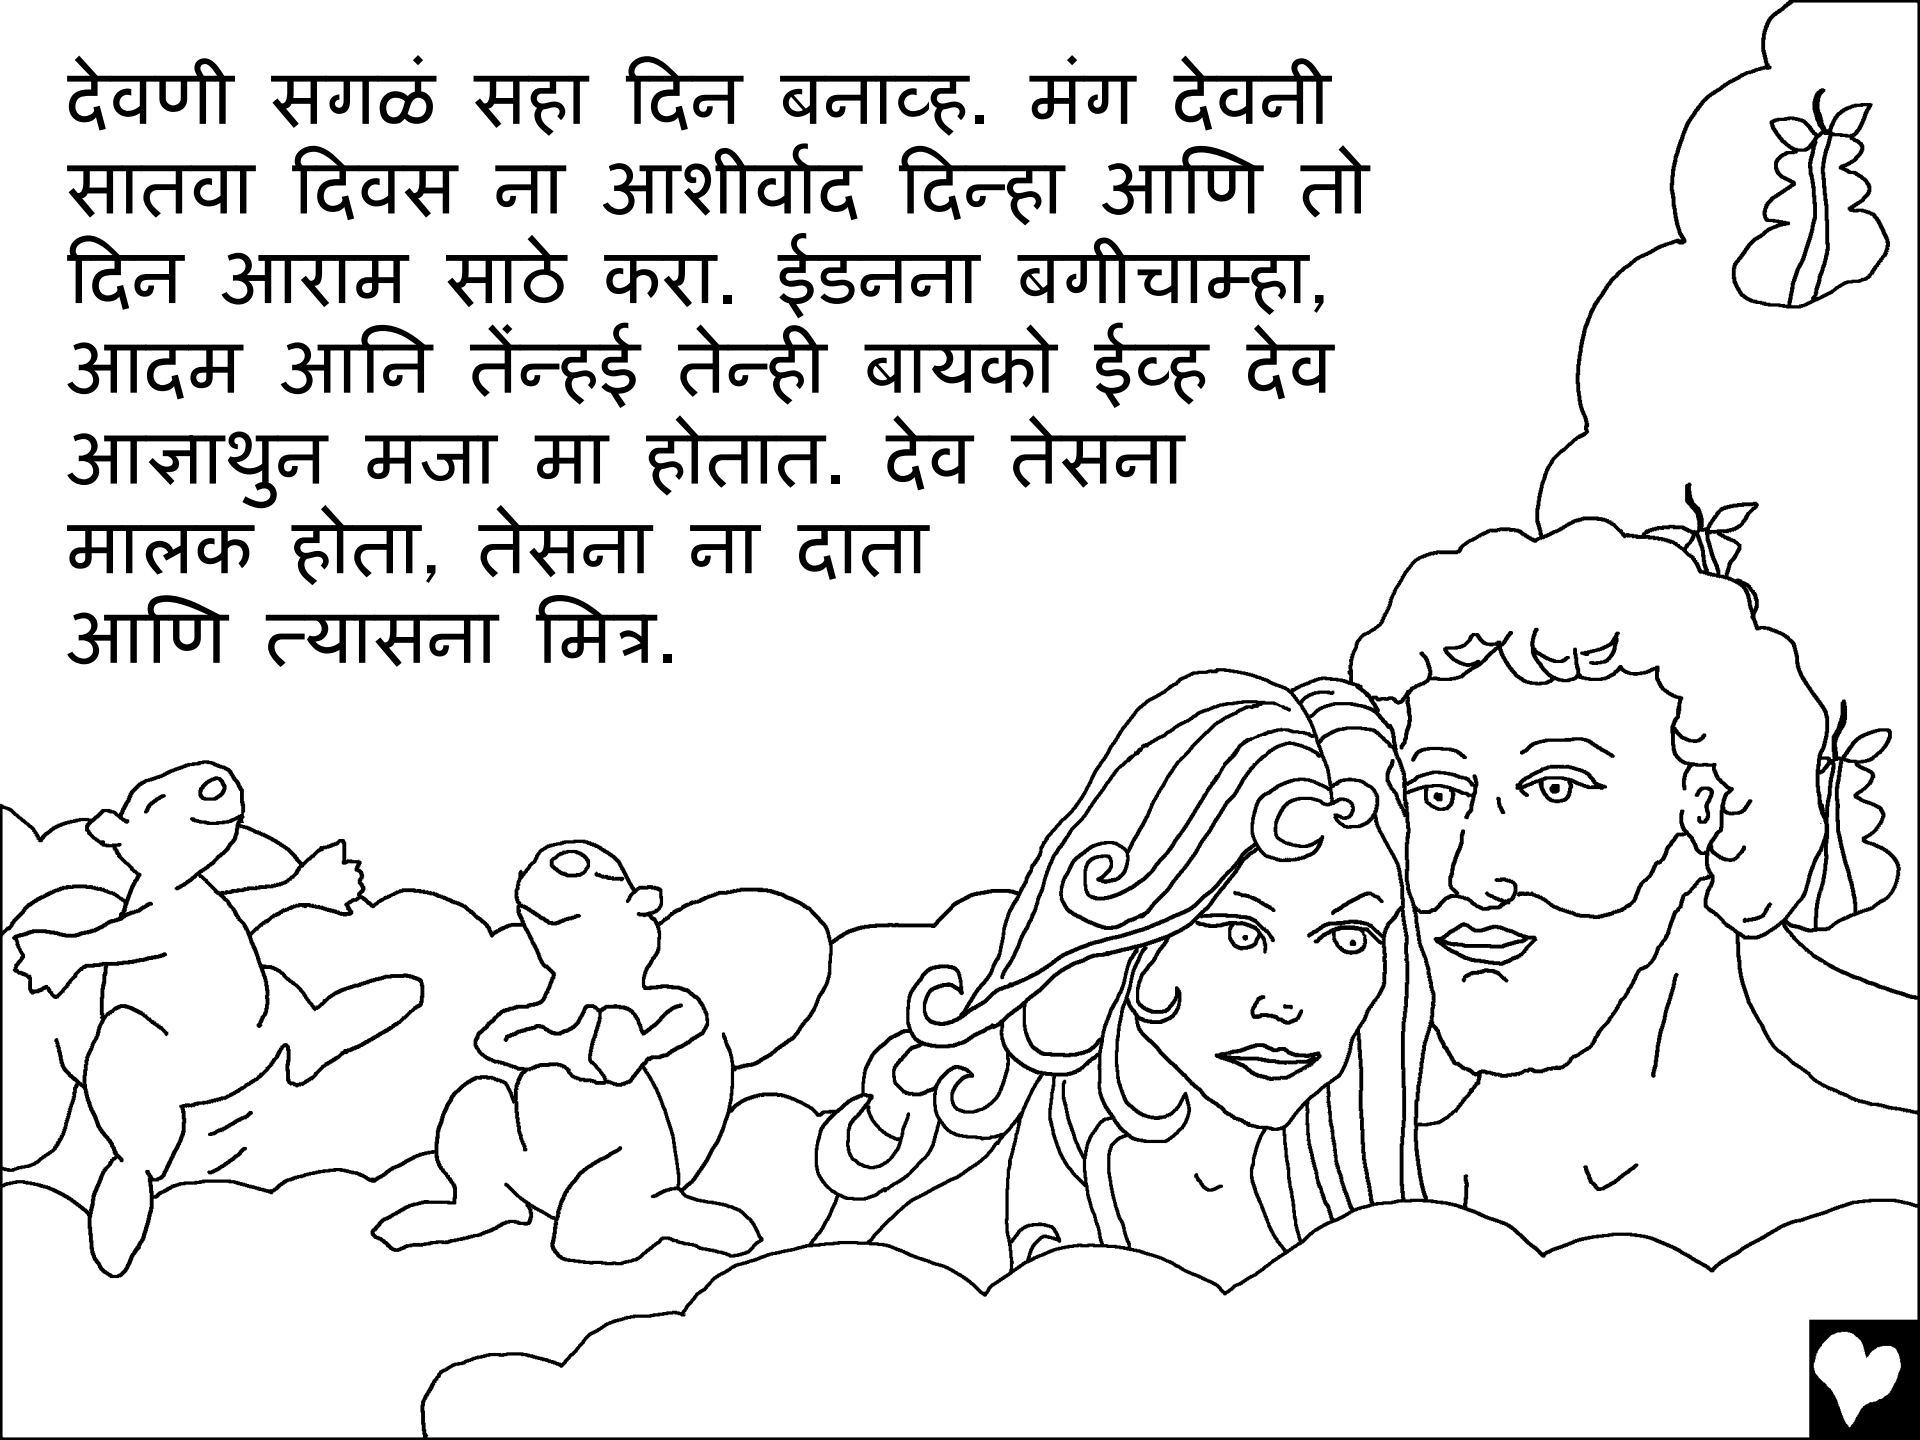 देवणी सगळं सहा दिन बनाव्ह. मंग देवनी
सातवा दिवस ना आशीर्वाद दिन्हा आणि तो
दिन आराम साठे करा. ईडनना बगीचाम्हा,
आदम आनि तेंन्हई तेन्ही बायको ईव्ह देव
आज्ञाथुन मजा मा होतात. देव तेसना
मालक होता, तेसना ना दाता
आणि त्यासना मित्र.